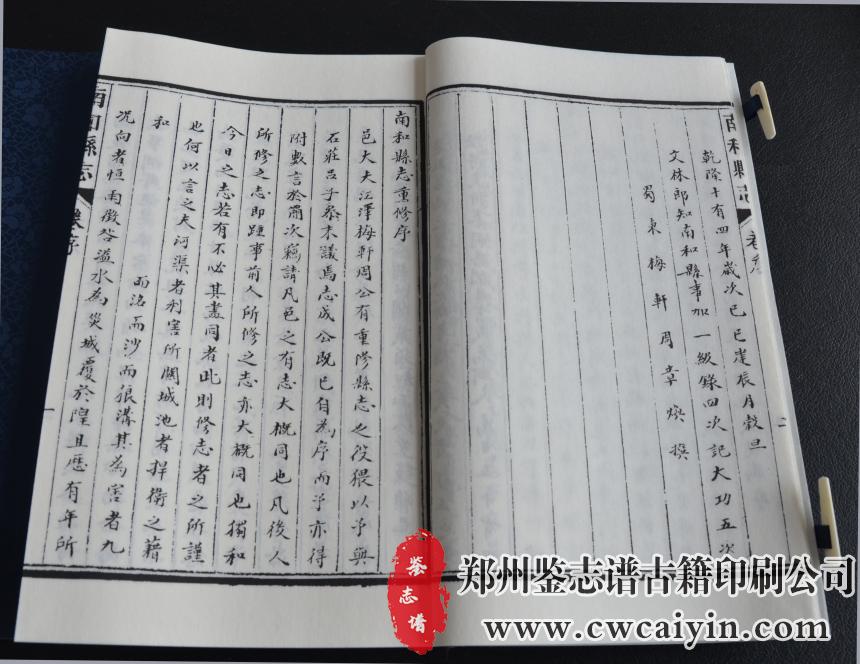 南和縣志
卷序
二
乾隆十有四年歲次己巳建辰月穀旦
文林郎知南和縣事加一級錄四次記大功五次
蜀東梅軒周章煥撰
南和縣志重修序
邑大夫江澤梅軒周公有重修縣志之役猥以予與
石莊呂子叅末議焉志成公既已自為序而予亦得
附數言於簡次竊請凡邑之有志大概同也凡後人
所修之志即踵事前人所修之志亦大概同也獨和
今日之志若有不必其盡同者此則修志者之所謹
也何以言之夫河渠者利害所關城池者捍衛之藉
和
而洺而沙而狼溝其為害者九
況向者恒雨徵咎溢水為災城覆於隍且歷有年所
南和縣志
卷序
一
鉴志谱
郑州鉴志谱古籍印刷公司
www.cwcaiyin.com